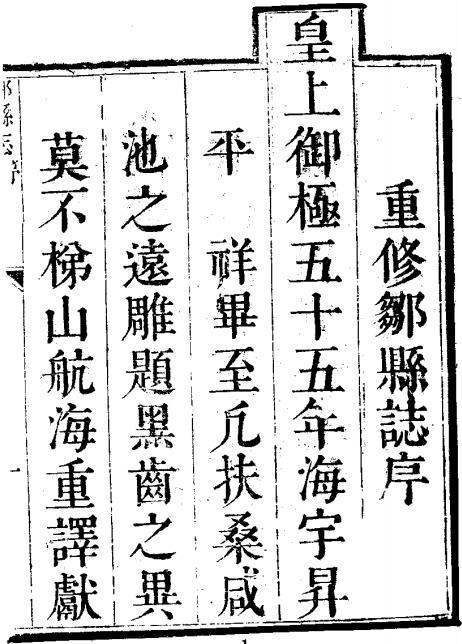 重修鄒縣誌序
皇上御極五十五年海宇昇
平 祥畢至凡扶桑咸
池之遠雕題黑齒之異
莫不梯山航海重譯獻
縣志序
一